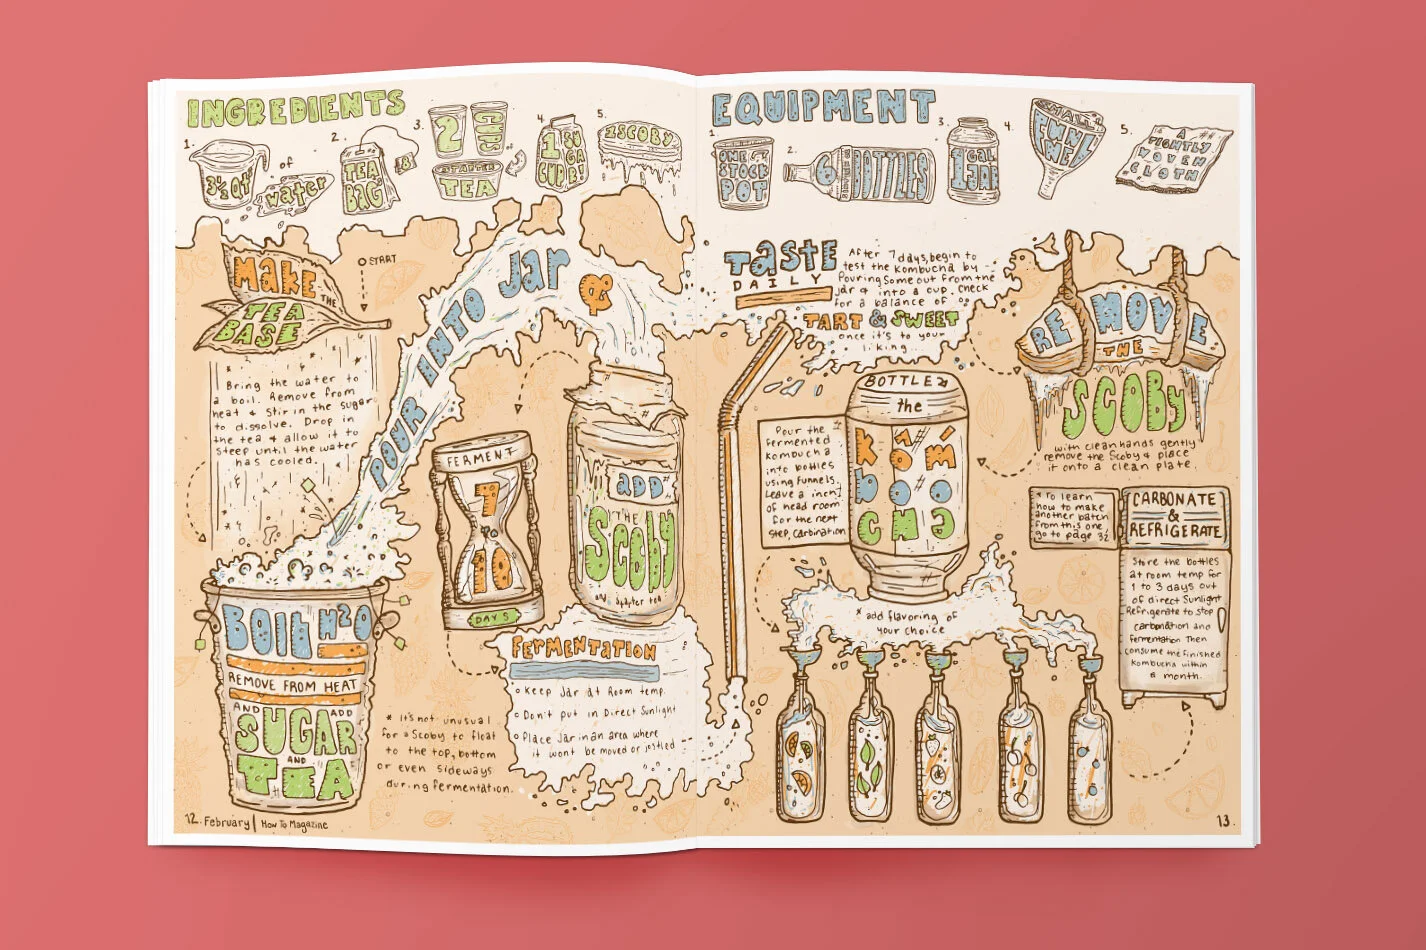 INGREDIENTS
1.
3½ QT
of
water
2.
TEA
BAG
3.
2
CUPS
of
STARTER
TEA
4.
1 SU
GA
CUP
5.
1 SCOBY
EQUIPMENT
1.
ONE
STOCK
POT
2.
6 BOTTLES
3.
1 GAL
JAR
4.
SMALL
FUNNEL
5.
A
TIGHTLY
WOVEN
CLOTH
MAKE THE
TEA
BASE
START
Bring the water to
a boil. Remove from
heat & stir in the sugar
to dissolve. Drop in
the tea & allow it to
steep until the water
has cooled.
BOIL H2O
REMOVE FROM HEAT
AND ADD
SUGAR
AND
TEA
POUR INTO Jar &
ADD
THE
Scoby
and starter tea
FERMENT
7
to
10
DAYS
FERMENTATION
Keep Jar at Room temp.
Don't put in Direct Sunlight
Place Jar in an area where
it wont be moved or jostled
* It's not unusual
for a Scoby to float
to the top, bottom
or even sideways
during fermentation.
12. February | How To Magazine
Taste
DAILY
After 7 days, begin to
test the kombucha by
Pouring Some out from the
jar & into a cup. Check
for a balance of
TART & SWEET
once it's to your
liking.
REMOVE
THE
SCOBY
with clean hands gently
remove the Scoby & place
it onto a clean plate.
BOTTLE
the
kom
boo
CHa
Pour the
fermented
Kombucha
into bottles
using funnels.
Leave a inch
of head room
for the next
step, carbination
* add flavoring of
your choice
* To learn
how to make
another batch
from this one,
go to page 32
CARBONATE
&
REFRIGERATE
Store the bottles
at room temp for
1 to 3 days out
of direct Sunlight
Refrigerate to stop
carbonation and
fermentation Then
consume the finished
Kombucha within
a month.
13.